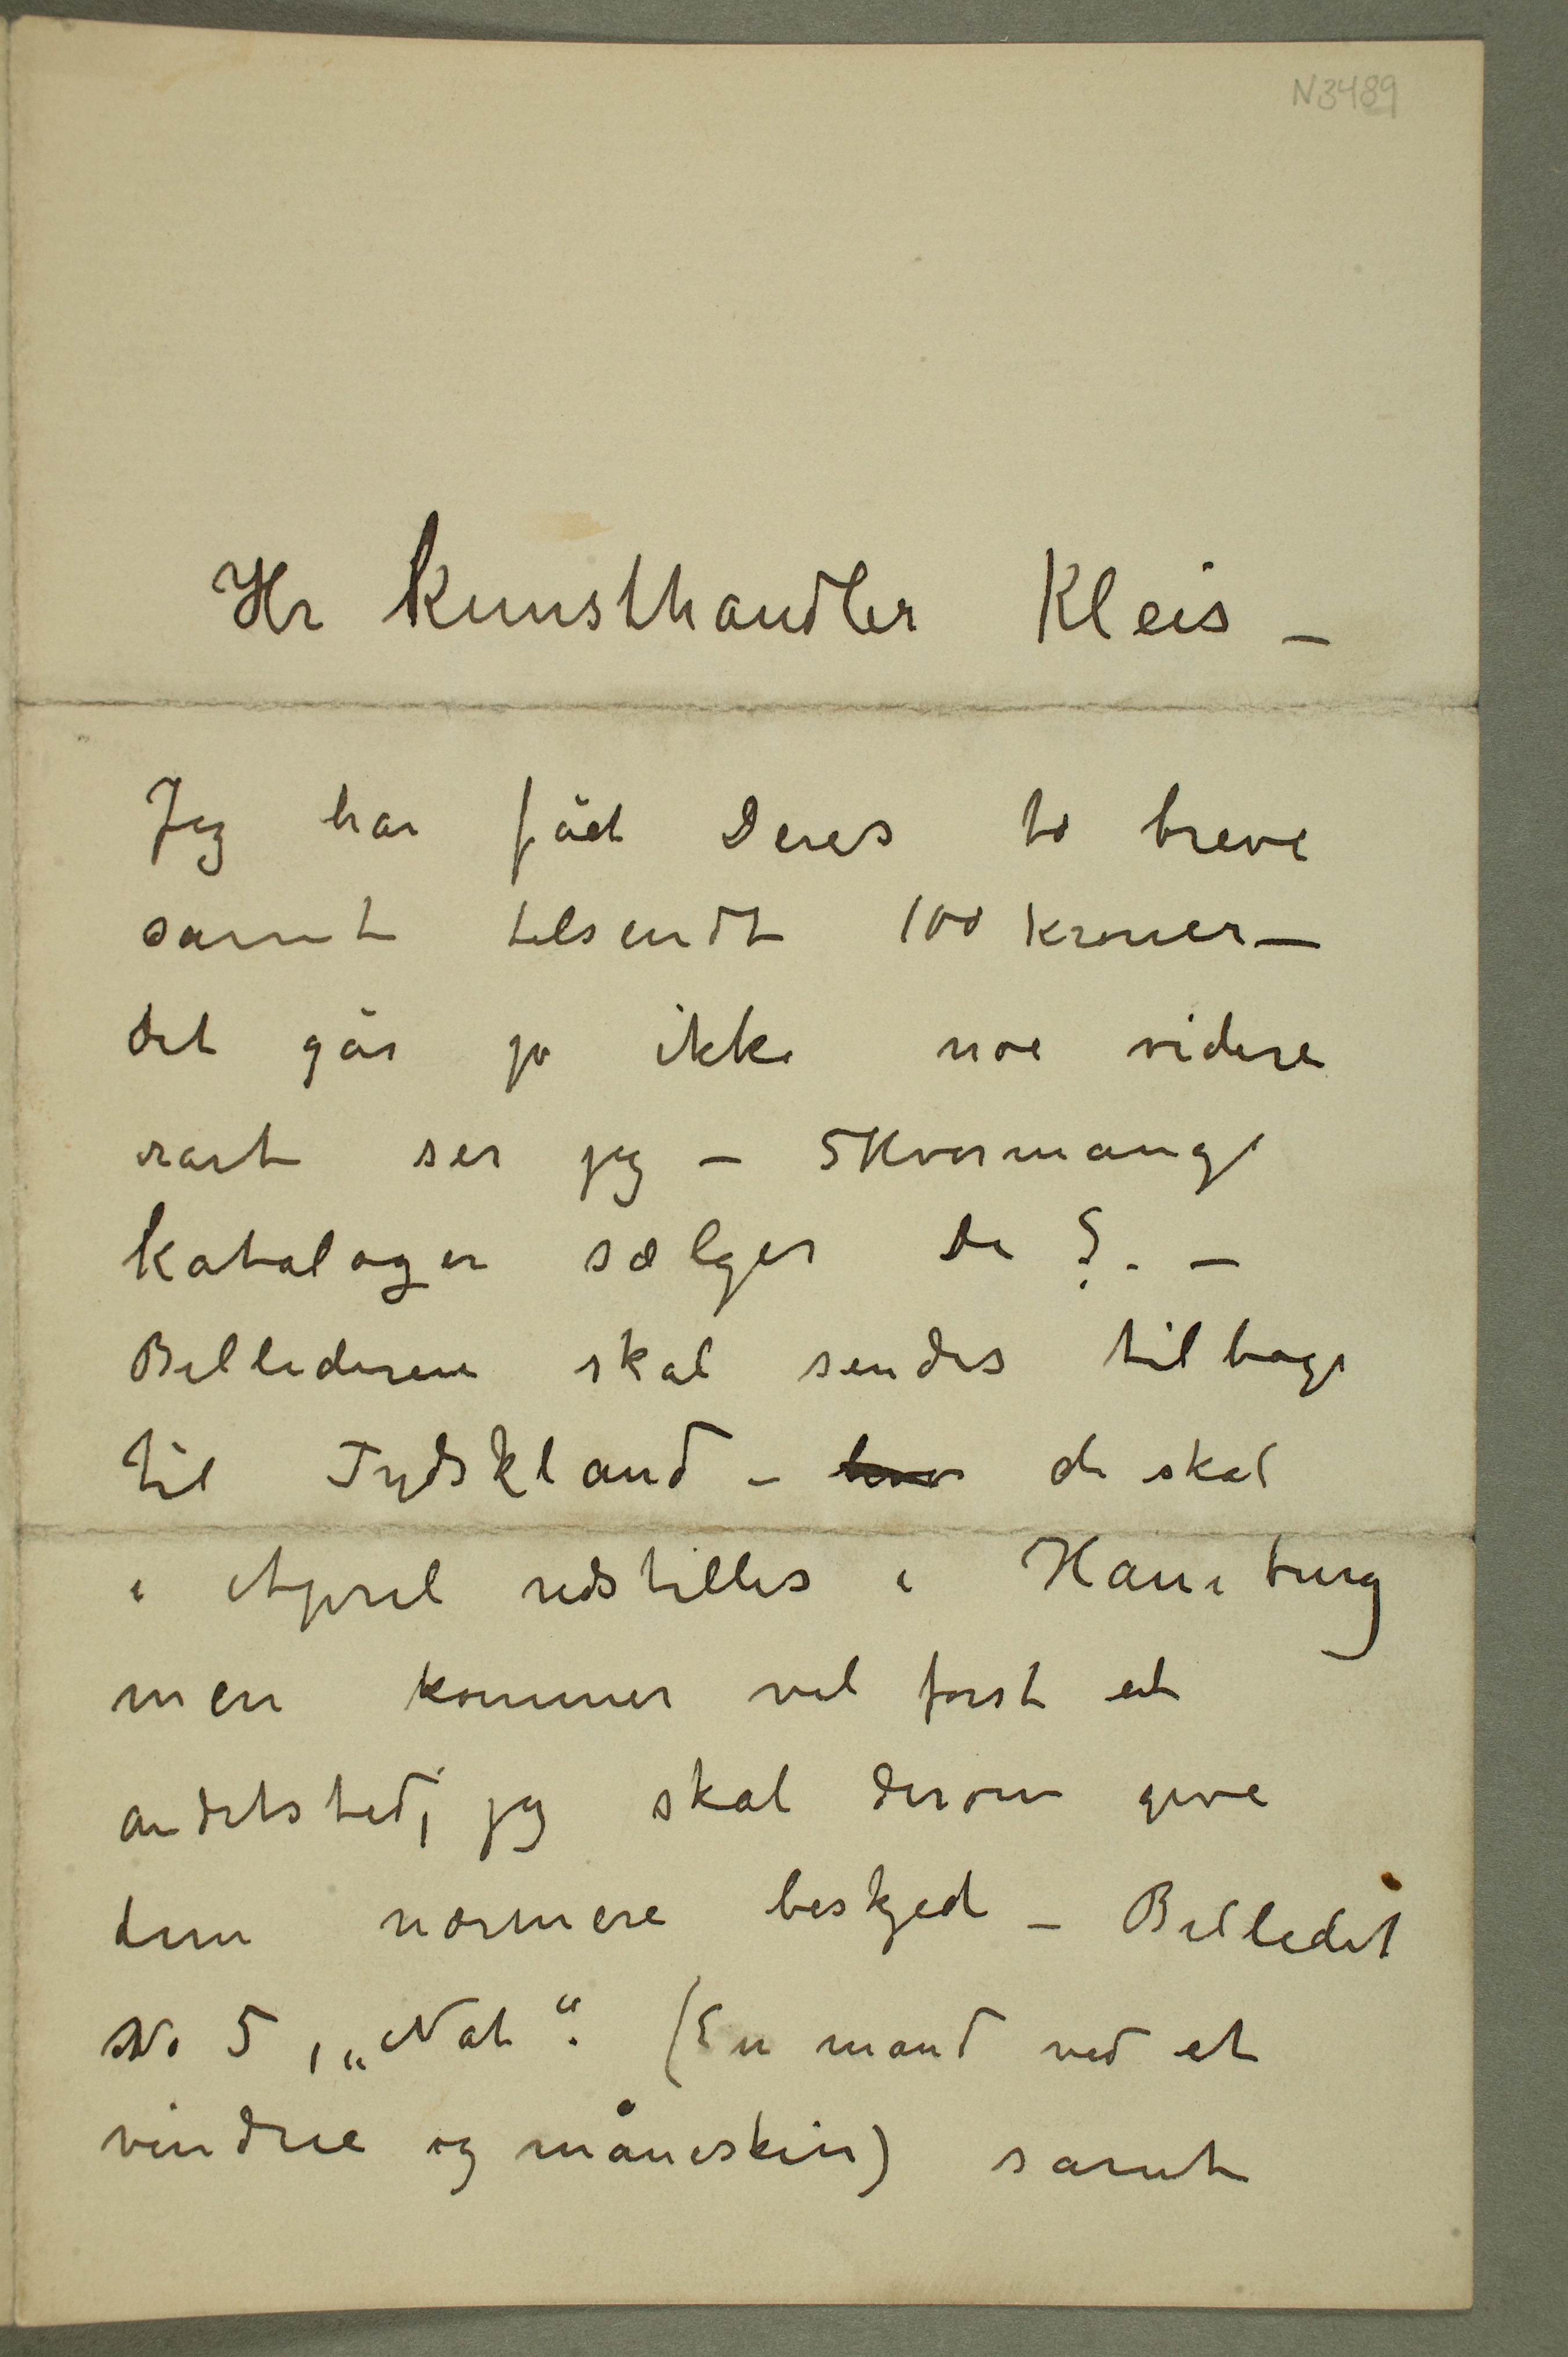 N3489
Hr Kunsthandler Kleis –
Jeg har fåt Deres to breve
samt tilsendt 100 kroner –
det går jo ikke noe videre
rart ser jeg – Hvormange
kataloger sælger De ?. –
Billederene skal sendes tilbage
til Tydskland – hvor de skal
i April udstilles i Hamburg
men kommer vel først et
andetsted, jeg skal derom give
dem nærmere beskjed – Billedet
No 5, „Nat“. (En mand ved et
vindue og måneskin) samt